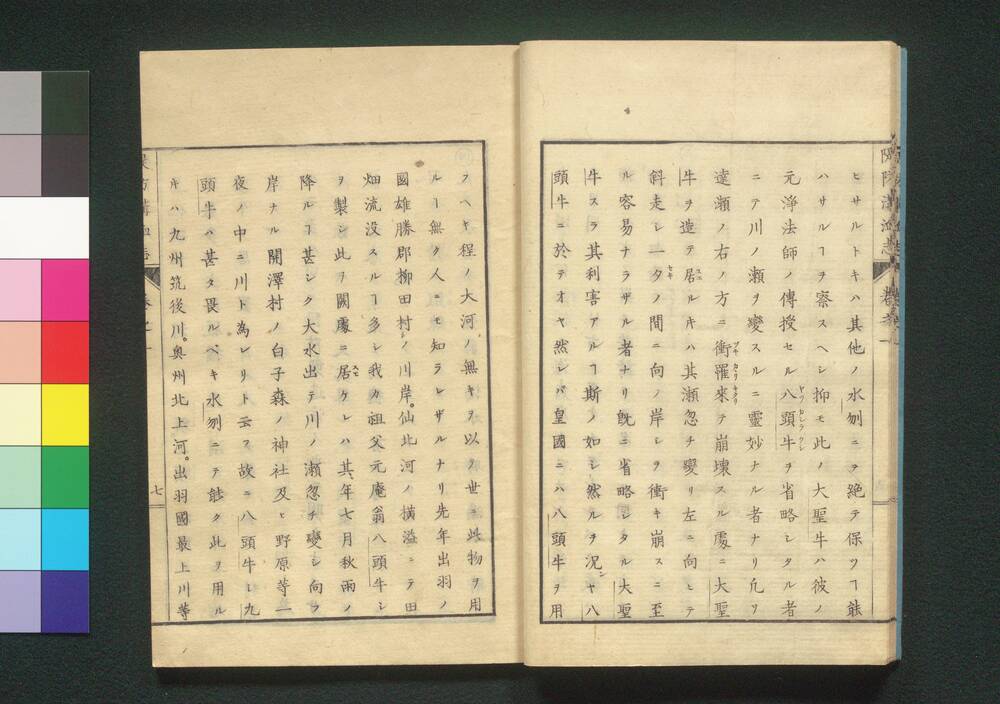 ヒサルトキハ其他ノ水刎ニヲ絶テ保ツヿ能
ハサルヿヲ察スヘシ抑モ此ノ大聖牛ハ彼ノ
元淨法師ノ傳授セル八頭牛ヲ省略シタル者
ニテ川ノ瀬ヲ變スルニ靈妙ナル者ナリ凡ソ
達瀬ノ右ノ方ニ衝羅來テ崩壞スル處ニ大聖
牛ヲ造テ居ルキハ其瀬忽チ變リ左ニ向ヒテ
斜走シ一夕ノ間ニ向ノ岸シヲ衝キ崩スニ至
ル容易ナラザル者ナリ既ニ省略シタル大聖
牛スラ其利害アルヿ斯ノ如シ然ルヲ況ヤ八
頭牛ニ於テオヤ然レバ皇國ニハ八頭牛ヲ用
フヘキ程ノ大河ノ無キヲ以テ世ニ此物ヲ用
ルヿ無ク人ニモ知ラレザルナリ先年出羽ノ
國雄勝郡柳田村ノ川岸仙北河ノ横溢ニテ田
畑流没スルヿ多シ我カ祖父元庵翁八頭牛シ
ヲ製シ此ヲ闕處ニ居ケレハ其年七月秋雨ノ
降ルヿ甚シク大水出テ川ノ瀬忽チ變シ向フ
岸ナル開澤村ノ白子森ノ神社及ヒ野原等一
夜ノ中ニ川ト為レリト云フ故ニ八頭牛シ九
頭牛ハ甚タ畏ルベキ水刎ニテ能ク此ヲ用ル
キハ九州筑後川奥州北上河出羽國最上川等
七